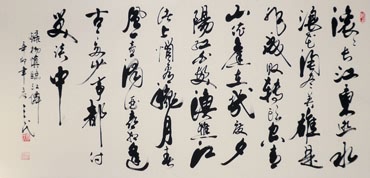 滚々長江東逝水
浪花淘尽英雄是
非成敗转頭空青
山依舊在幾度夕
陽红白发漁樵江
渚上惯看秋月春
風一壺濁酒喜相逢
古今多少事都付
笑谈中
錄杨慎臨江仙
辛卯